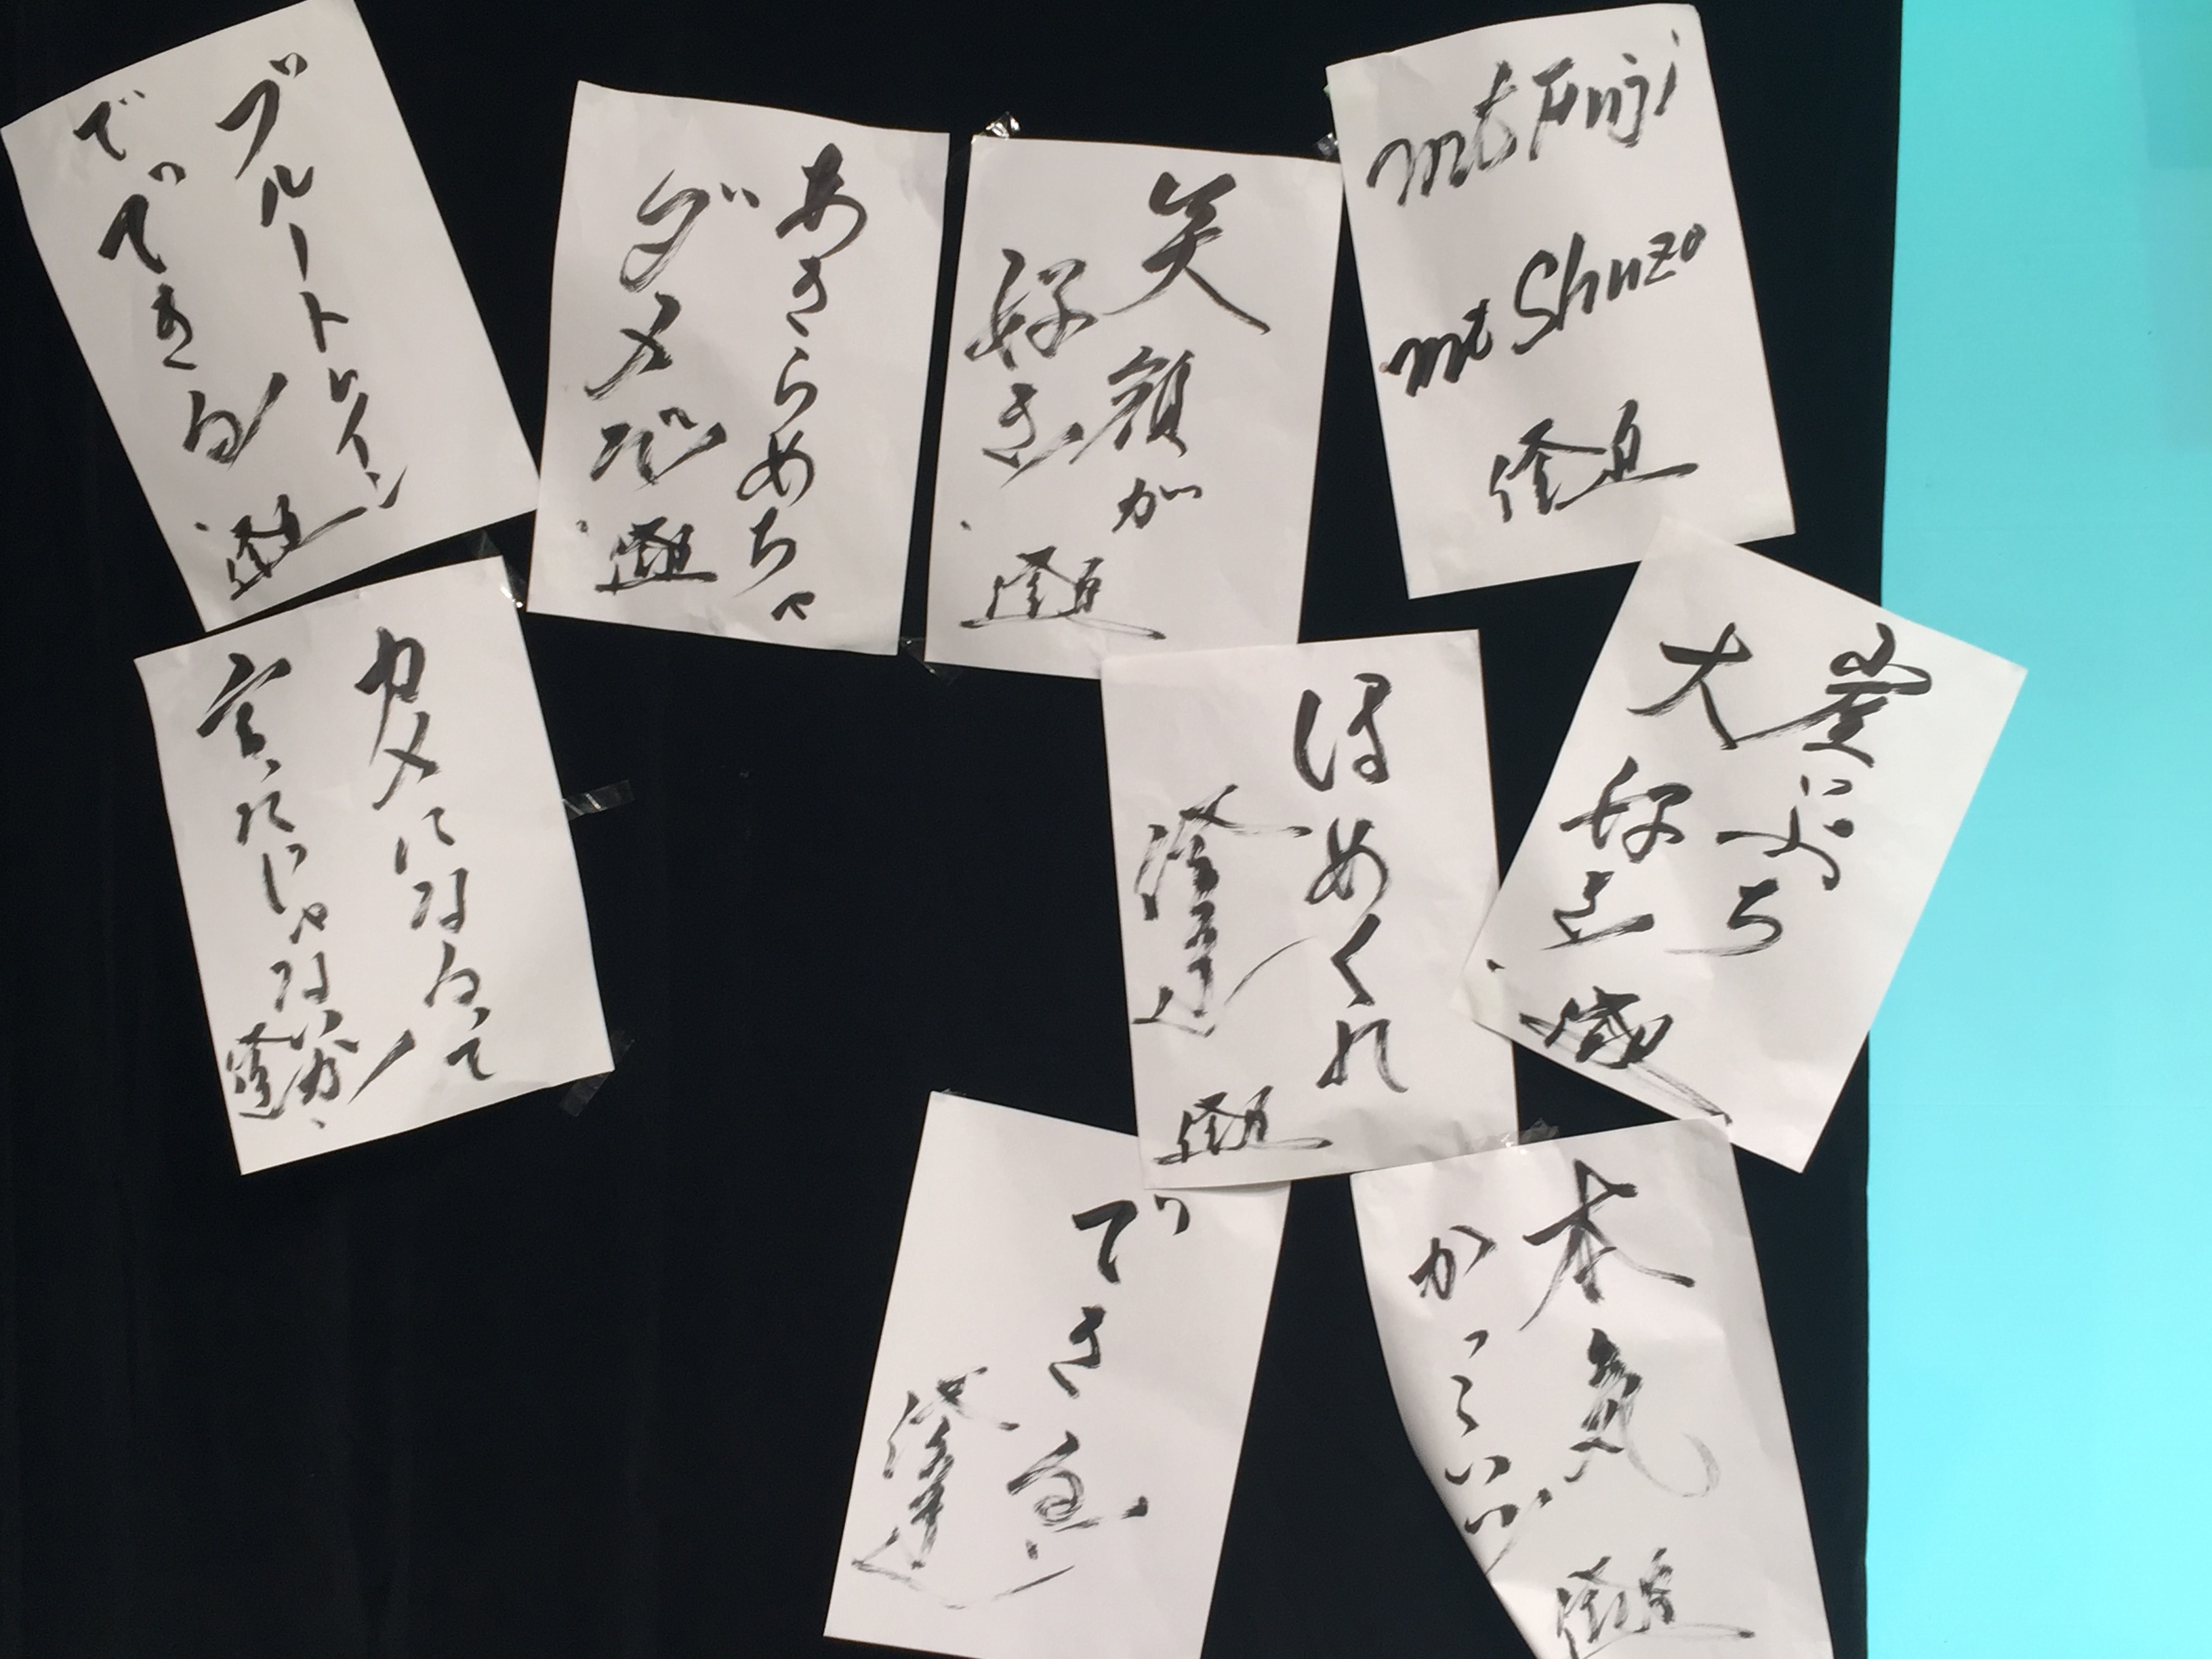 ブルートレイン
でできる!
修造
あきらめちゃ
ダメだ!
修造
笑顔が
好き!
修造
mt Fuji
mt Shuzo
修造
カメになるって
言ったじゃないか!
修造
ほめくれ
修造
崖っぷち
大好き!
できる!
修造
本気
かっこいい!
修造